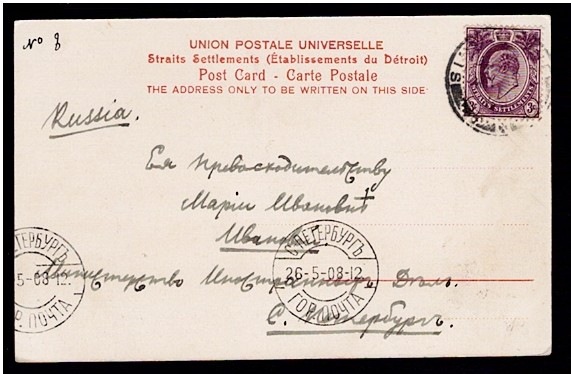 № 8
UNION POSTALE UNIVERSELLE
Straits Settlements (Établissements du Détroit)
Post Card - Carte Postale
THE ADDRESS ONLY TO BE WRITTEN ON THIS SIDE
STRAITS SETTLEMENTS
3c
Russia.
Ея Превосходительству
Маріи Ивановнѣ
С.ПЕТЕРБУРГЪ
26-5-08-12
ГОР. ПОЧТА
ЕТЕРБУРГЪ
5-08-12
Р. ПОЧТА
Министерство Иностранныхъ Дѣлъ.
С. Петербургъ.